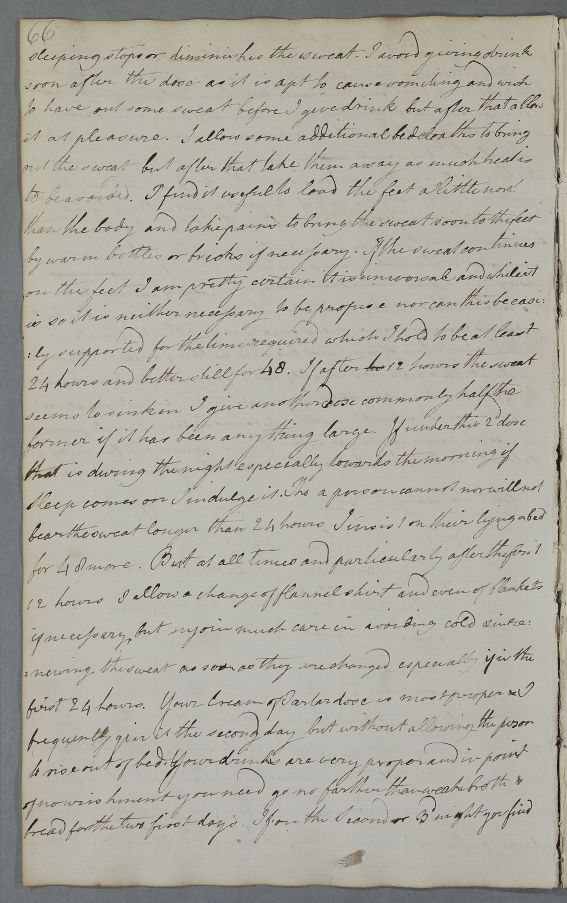 66
sleeping stops or diminishes the sweat. I avoid giving drink
soon after the dose as it is apt to cause vomiting and wish
to have out some sweat before I give drink but after that allow
it at pleasure. I allow some additional bedcloaths to bring
out the sweat but after that take them away as much heat is
to be avoided. I find it useful to load the feet a little more
than the body and take pains to bring the sweat soon to the feet
by warm bottles or bricks if necessary. If the sweat continues
on the feet I am pretty certain it is universal and whilst it
is so it is neither necessary to be profuse nor can this be easi:
:ly supported for the time required which I hold to be at least
24 hours and better still for 48. If after 12 hours the sweat
seems to sink in I give another dose commonly half the
former if it has been any thing large. If under this 2d dose
that is during the night especially towards the morning if
sleep comes on I indulge it. Tho a person cannot nor will not
bear the sweat longer than 24 hours I insist on their lying abed
for 48 more. But at all times and particularly after the first
12 hours I allow a change of flannel shirt and even of blankets
if necessary but enjoin much care in avoiding cold in re:
:newing the sweat as soon as they are changed especially if in the
first 24 hours. Your Cream of Tartar dose is most proper & I
frequently give it the second day but without allowing the person
to rise out of bed. Your drinks are very proper and in point
of nourishment you need go no farther than weak broth &
bread for the two first days. If on the second or 3d night you find